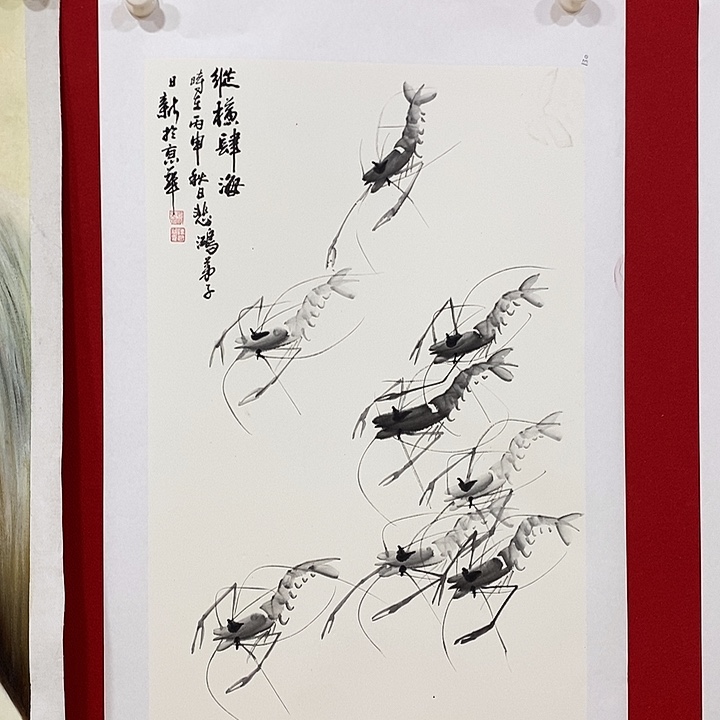 縱橫肆海
時在丙申秋日悲鴻弟子
日新於京華